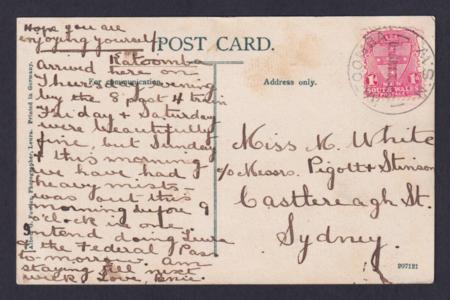 Hope you are
enjoying yourself
POST CARD.
Katoomba
For communication.
arrived here on
Thursday evening
by the 8 past 4 train
Friday & Saturday
were beautifully
fine, but Sunday
& this morning
we have had
heavy mists —
was out this
morning before 9
o'clock in one
intend doing Leura
& the Federal Pass
to-morrow. Am
staying till next
week Love,
Printed in Germany.
Photographer, Leura.
Address only.
NEW
SOUTH WALES
1d
KATOOMBA
N.S.W
Miss M. White
c/o Messrs. Pigott & Stinson
Castlereagh St.
Sydney.
207121